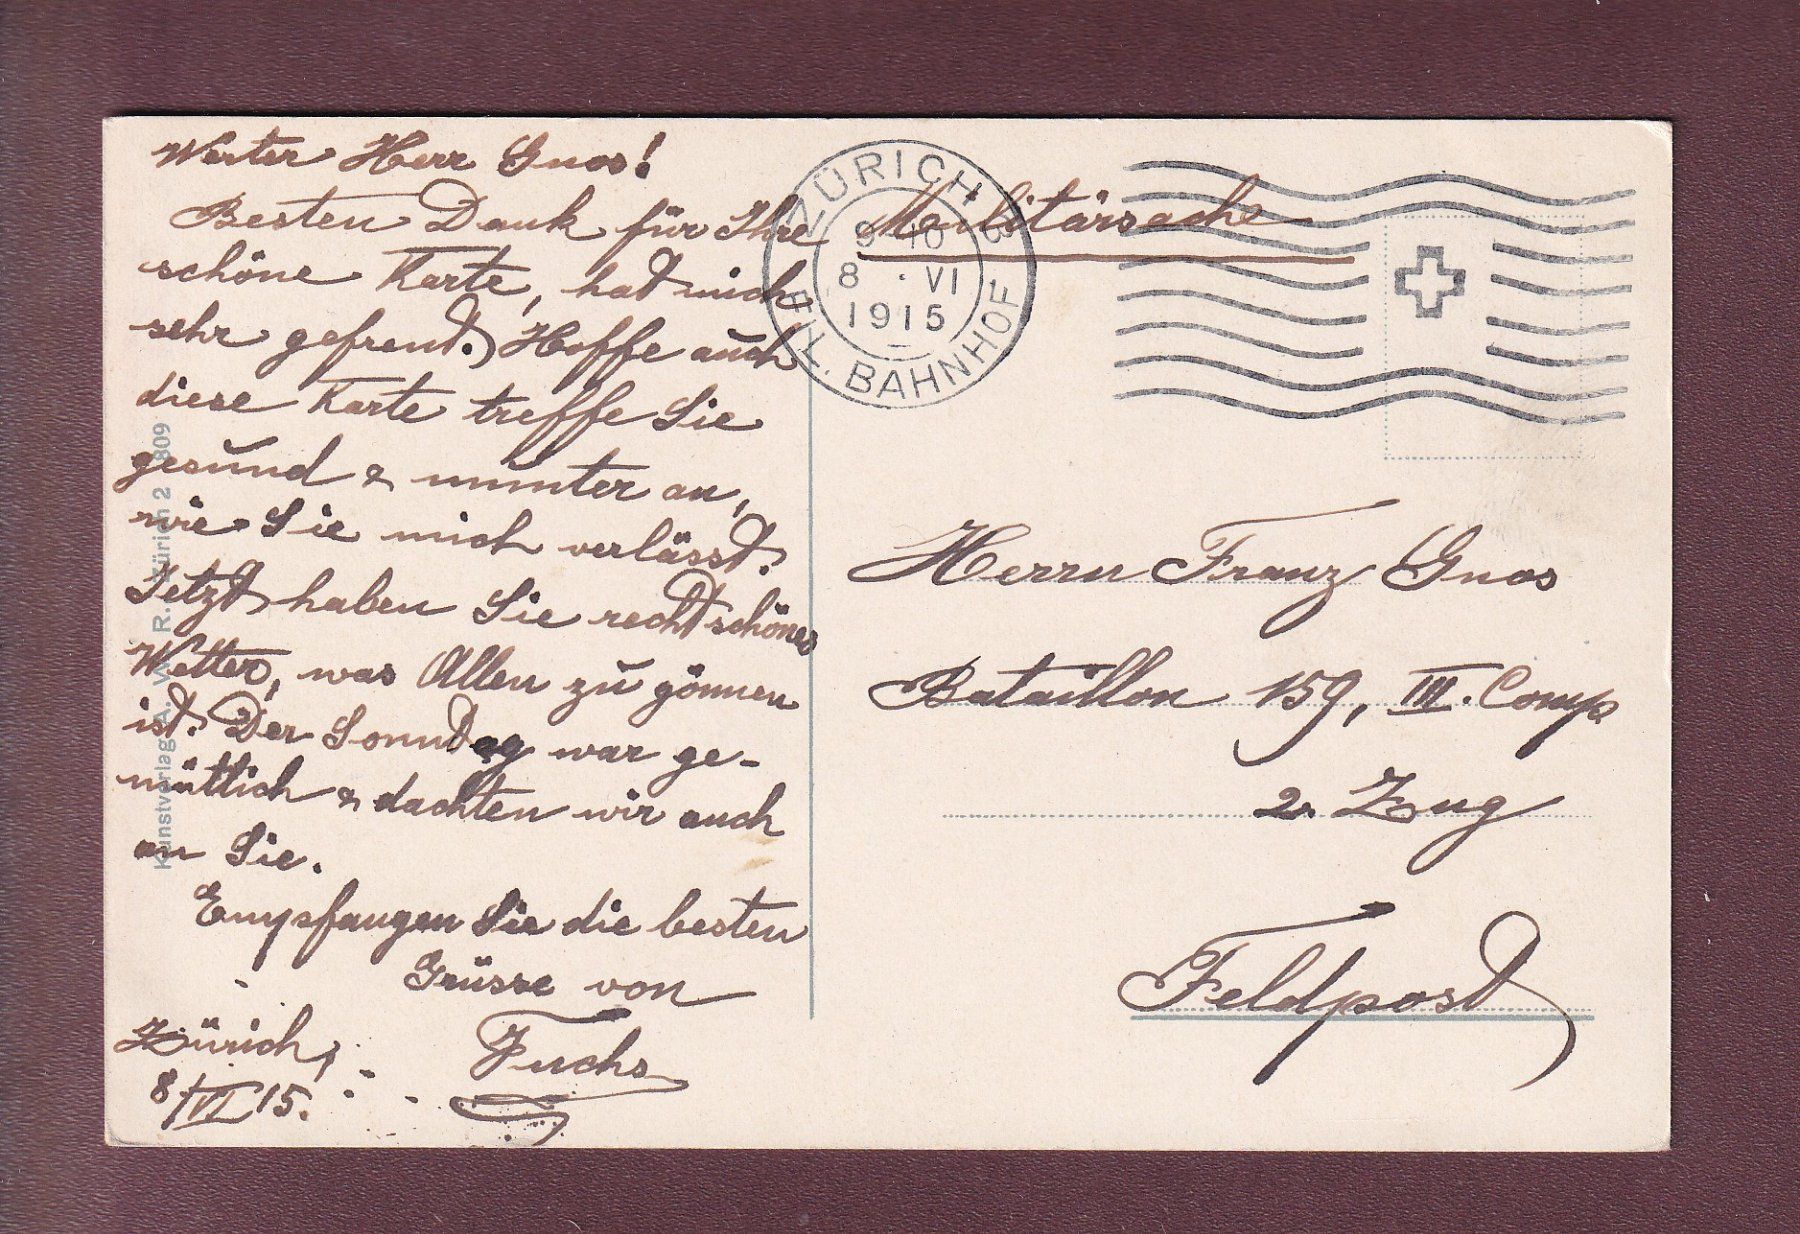 Werter Herr Gnos!
Besten Dank für Ihre
schöne Karte, hat mich
sehr gefreut. Hoffe auch
diese Karte treffe Sie
gesund & munter an,
wie Sie mich verlässt.
Jetzt haben Sie recht schönes
Wetter, was Allen zu gönnen
ist. Der Sonntag war ge-
mütlich & dachten wir auch
an Sie.
Empfangen Sie die besten
Grüsse von
Fuchs
Zürich,
8/VI 15.
Kunstverlag A. W. R. Zürich 2 809
ZÜRICH
9-10
8 . VI
1915
FIL. BAHNHOF
Militärsache
Herrn Franz Gnos
Bataillon 159, III. Comp
2. Zug
Feldpost